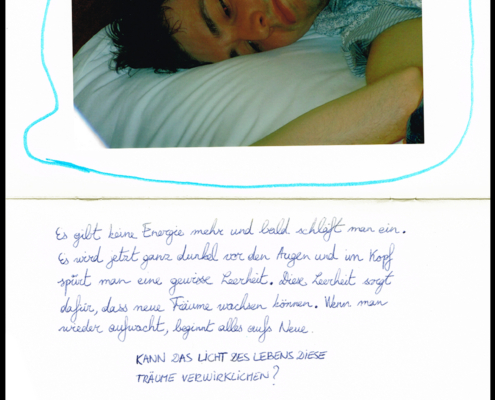 Es gibt keine Energie mehr und bald schläft man ein.
Es wird jetzt ganz dunkel vor den Augen und im Kopf
spürt man eine gewisse Leerheit. Diese Leerheit sorgt
dafür, dass neue Träume wachsen können. Wenn man
wieder aufwacht, beginnt alles aufs Neue.
KANN DAS LICHT DES LEBENS DIESE
TRÄUME VERWIRKLICHEN?